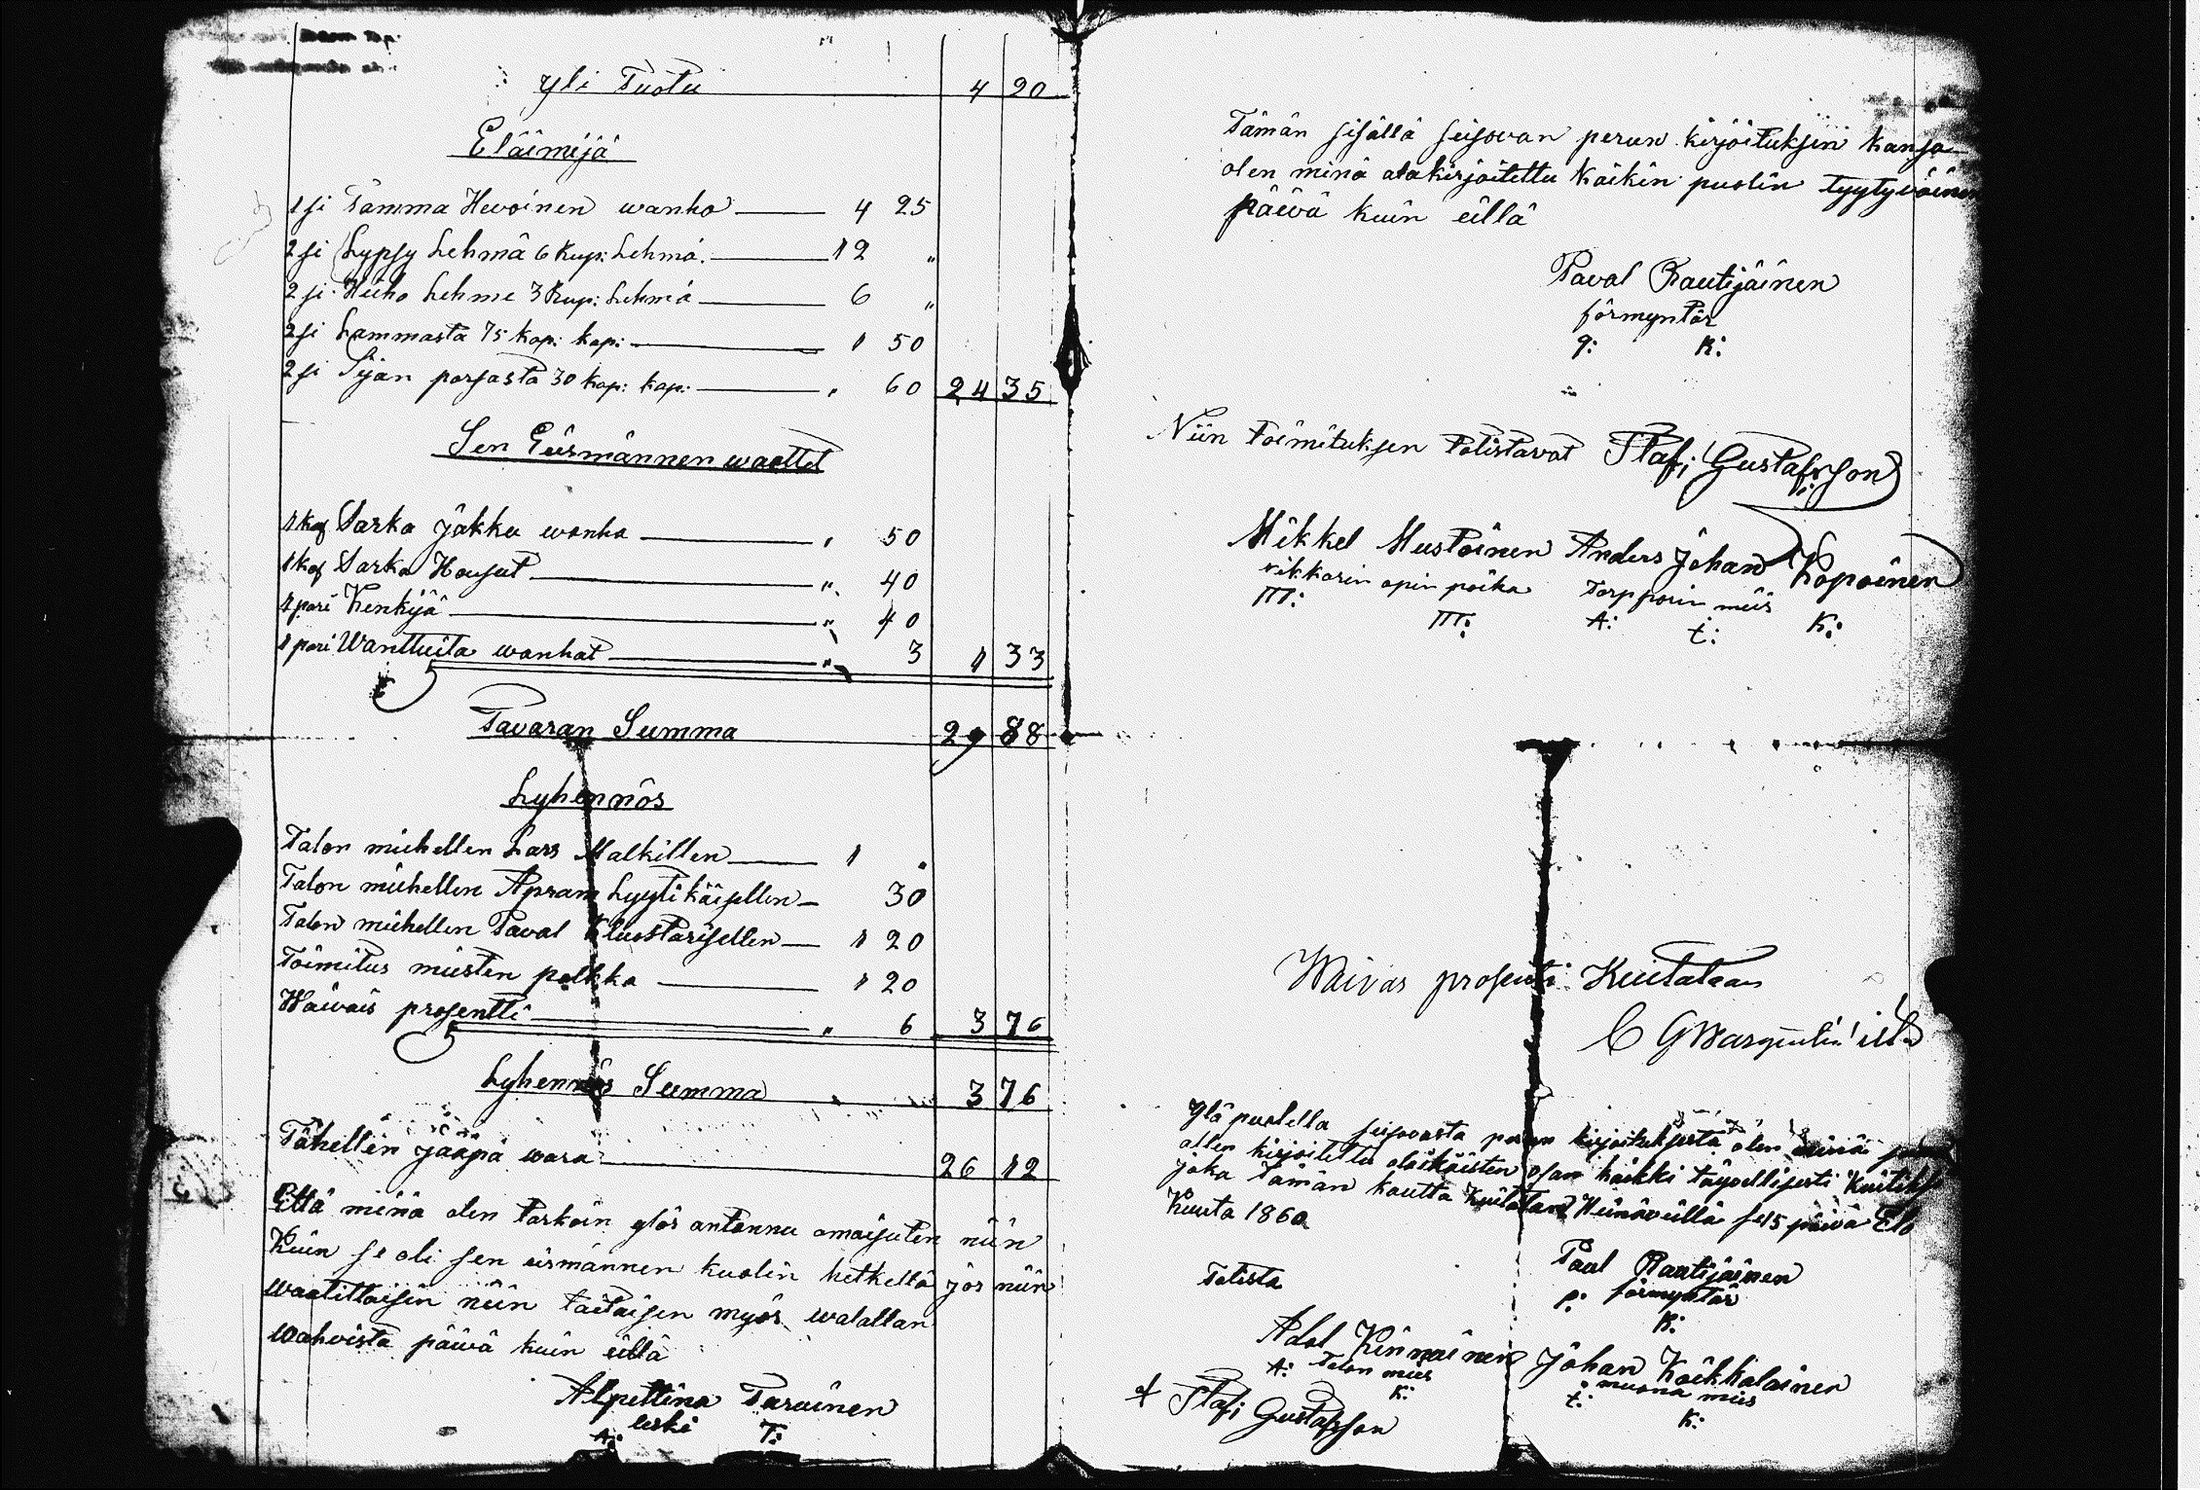 Yli Tuotu 4 20
Eläimijä
1 si Tamma Hevoinen wanha 4 25
2 si Lypsy Lehmä 6 Rup: Lehmä. 12 "
2 si Hieho Lehme 3 Rup: Lehmä 6 "
2 si Lammasta 75 kop: kap: 1 50
2 si Sijan porsasta 30 kop: kap: " 60 24 35
Sen Eüsmännen waattet
1 Kap Sarka Jakku wanha " 50
1 kap Sarka Housut " 40
1 pari Kenkijä " 40
1 pari Wanttuita wanhat " 3 1 33
Tavaran Summa 29 88
Lyhennös
Talon miehellen Lars Malkillen 1 "
Talon miehellen Apram Lyytikäisellen 30
Talon miehellen Paval Kluostarisellen 1 20
Toimitus miesten palkka 1 20
Waivais prosentti " 6 3 76
Lyhennös Summa 3 76
Tähellen jääpä wara 26 12
Että minä olen tarkoin ylös antannu omaisuten niin
Kuin se oli sen eismännen kuolin hetkellä jos niin
waatittaisin niin taitaisen myös walallan
wahvista päivä kuin üllä
Alpettina Tarvinen
leski
A: T:
Tämän sisällä seisovan perun kirjoituksen kansa
olen minä alakirjoitettu kaikin puolin tyytyväinen
päivä kuin üllä
Paval Rautijäinen
förmyntär
P: R:
Niin toimituksen totistavat Staf: Gustafsson
Mikkel Mustoinen Anders Johan Kopoinen
nikkarin opin poika Torpparin mies
M: M: A: t: K:
Waivas prosenti Kuitataan
C G Wargentin
Ylä puolella seisovasta perun kirjoituksesta olen minä
allen kirjoitettu alaikäisten osan kaikki täydellisesti
joka tämän kautta kuitatan Heinäveillä se 15 päivä Elo
Kuuta 1860
Totista
Paul Rautijäinen
förmyntär
P: R:
Adol Kinnainen Johan Käikkälainen
A: Talon mies K: t: muona mies K:
Staf: Gustafsson